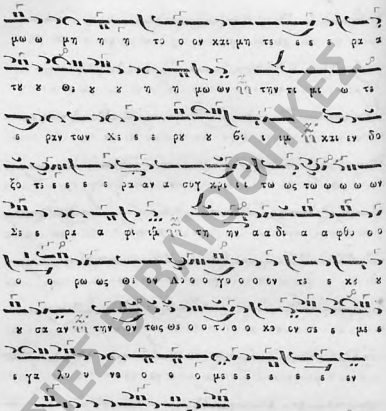 μω ω μη η η το ο ον και μη τε ε ε ε ρα α
του Θε ου η η μω ων την τι μι ω τε
ε ραν των Χε ε ε ρου ου βι ι ιμ και εν δο
ξο τε ε ε ε ε ρα αν α συγ κρι ι ι τω ως τω ω ω ω ων
Σε ε ρα α φι ιμ τη ην α α δι α α φθο ο ο
ο ο ρω ως Θε ον Λο ο ο γο ο ο εν τε ε κου
ου σα αν την ον τως Θε ο ο το ο ο κο ον σε ε με ε
ε γα λυ υ νο ο ο ο με ε ε ε ε ε εν
ΒΙΒΛΙΟΘΗΚΕΣ